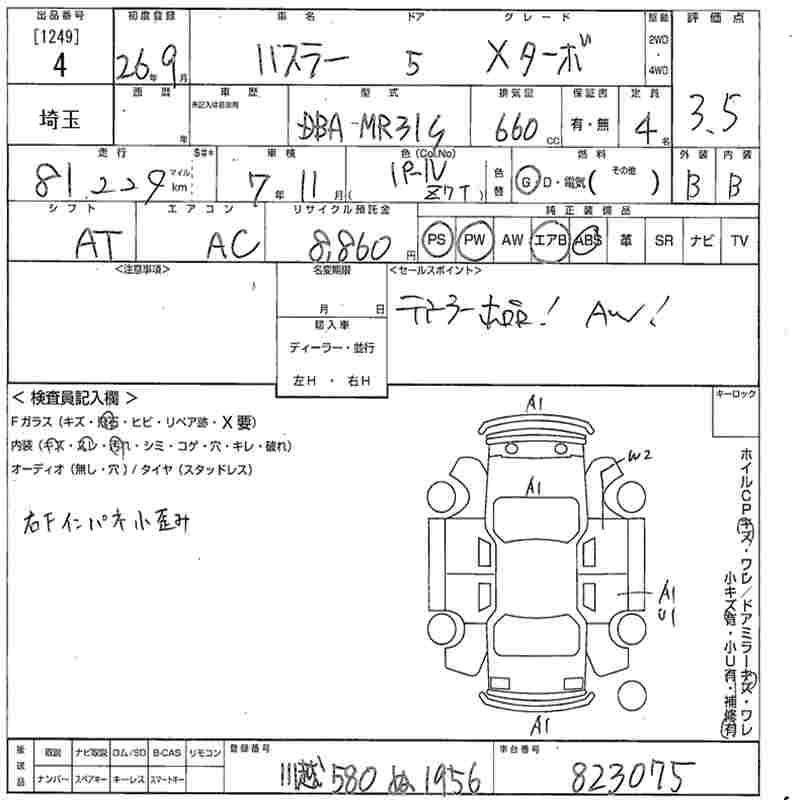 出品番号 初度登録 車名 ドア グレード 駆動 評価点
[1249]
4 26年9月 ハスラー 5 Xターボ 2WD・4WD 3.5
埼玉 車歴 型式 排気量 保証書 定員
未記入は自家用
年 DBA-MR31S 660cc 有・無 4名
走行 車検 色(Col.No) 色替 燃料 外装 内装
81,229 マイル km 7年11月 ( Z7T ) G・D・電気( その他 ) B B
シフト エアコン リサイクル預託金 純正装備品
AT AC 8,860円 PS PW AW エアB ABS 革 SR ナビ TV
<注意事項> 名変期限 <セールスポイント>
月 日
輸入車
ディーラー・並行
左H・右H
AW!
<検査員記入欄> キーロック
Fガラス(キズ・飛石・ヒビ・リペア跡・X要)
内装(キズ・スレ・汚れ・シミ・コゲ・穴・キレ・破れ)
オーディオ(無し・穴)/タイヤ(スタッドレス)
右Fインパネ小歪み
A1
W2
A1
A1
U1
A1
ホイルCP(キズ・ワレ/ドアミラーキズ・ワレ
小キズ有・小U有・補修有
後送品 取説 ナビ取説 ロム/SD B-CAS リモコン 登録番号 車台番号
ナンバー スペアキー キーレス スマートキー 川越 580 ぬ 1956 823075